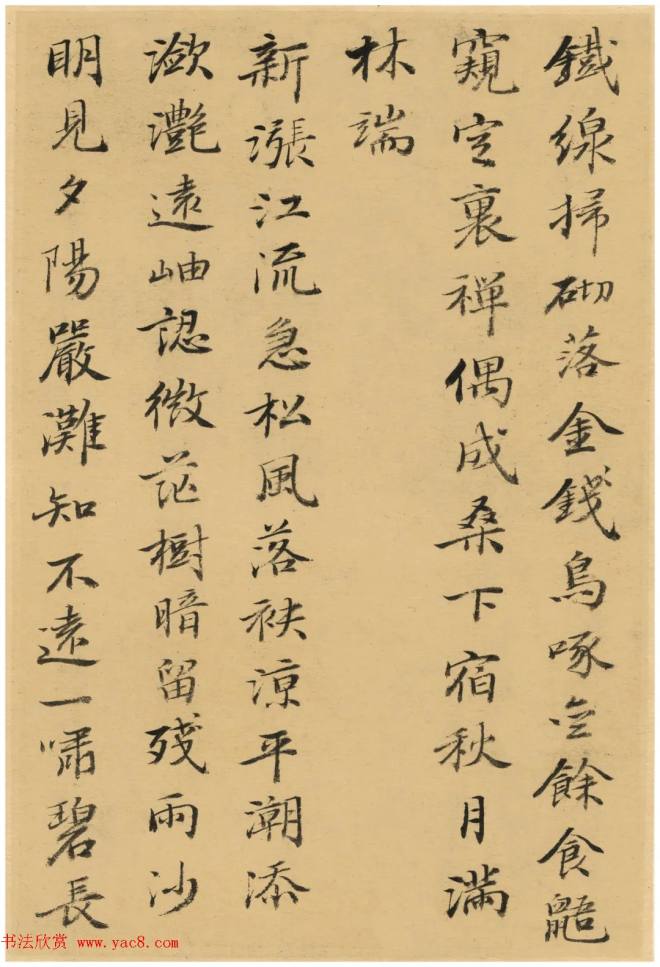 鐵線掃砌落金錢烏啄亝餘食鼯
窺定裏禪偶成桑下宿秋月滿
林端
新漲江流急松風落袂涼平潮添
瀲灧遠岫認微茫樹暗留殘雨沙
眀見夕陽嚴灘知不遠一嘯碧長
书法欣赏 www.yac8.com